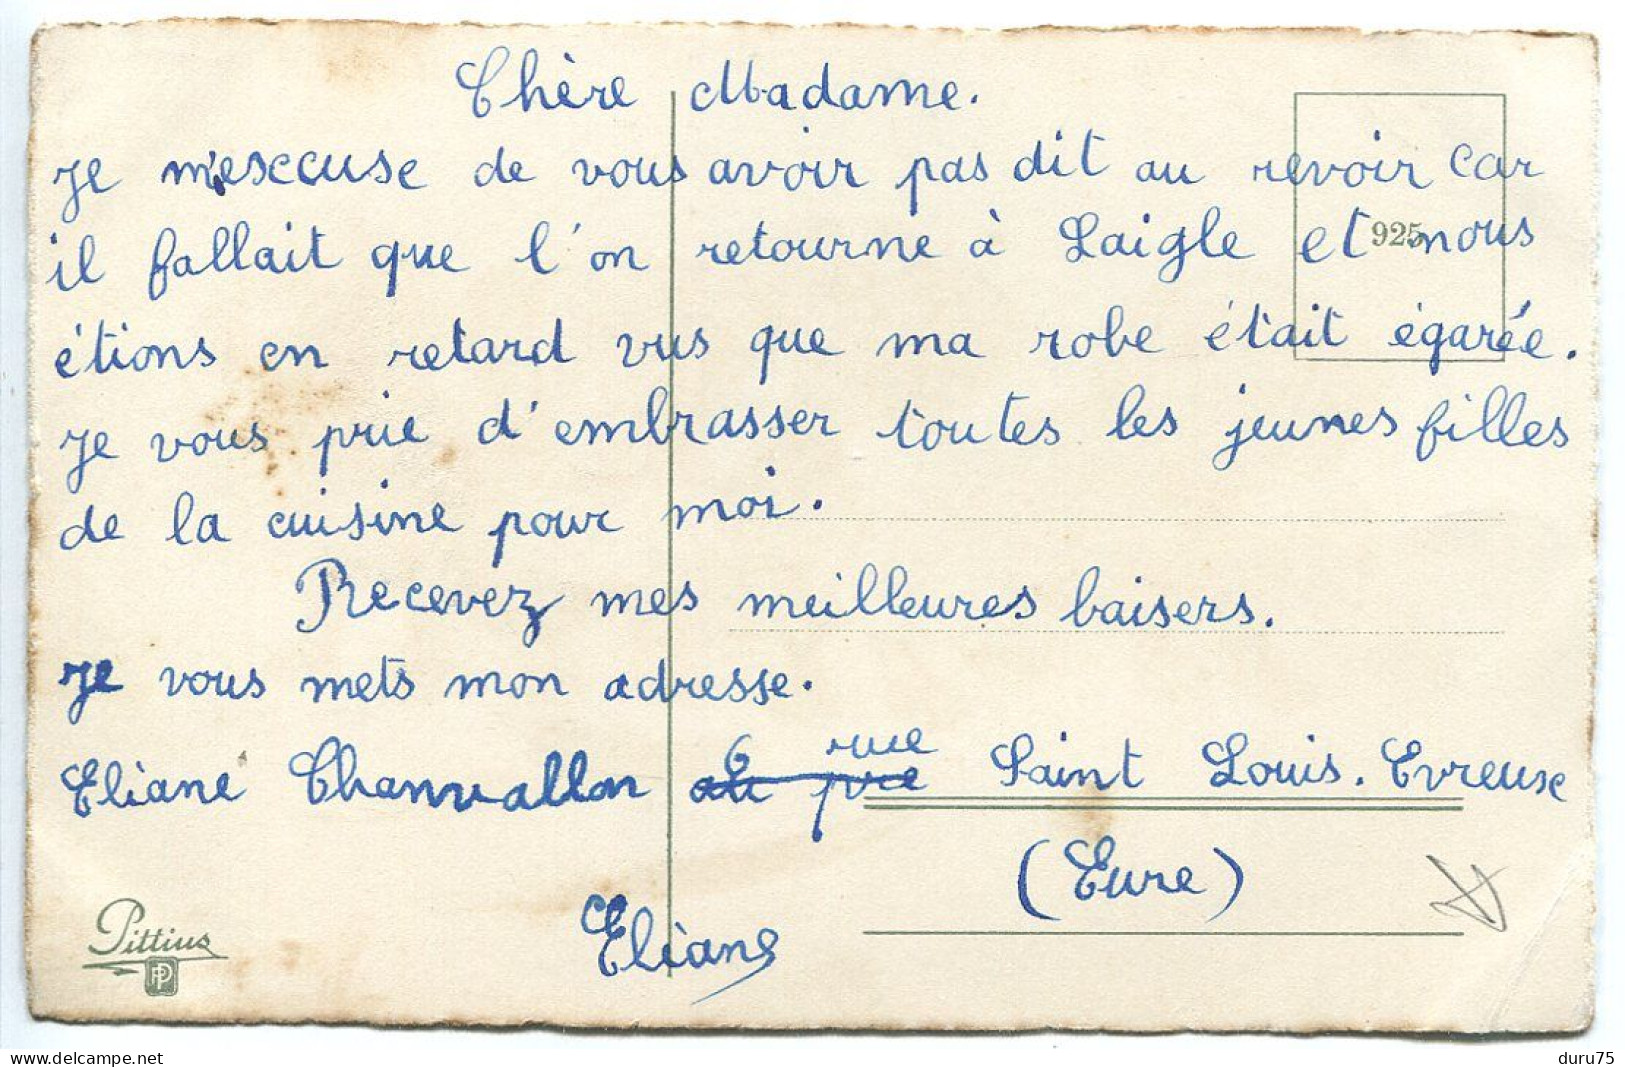 Chère Madame.
Je m'esccuse de vous avoir pas dit au revoir car
il fallait que l'on retourne à Laigle et nous
925
étions en retard vus que ma robe était égarée.
Je vous prie d'embrasser toutes les jeunes filles
de la cuisine pour moi.
Recevez mes meilleures baisers.
Je vous mets mon adresse.
6 rue
Eliane Chanvallon au Saint Louis. Evreuse
(Eure)
Eliane
Pittius
PP
www.delcampe.net
duru75